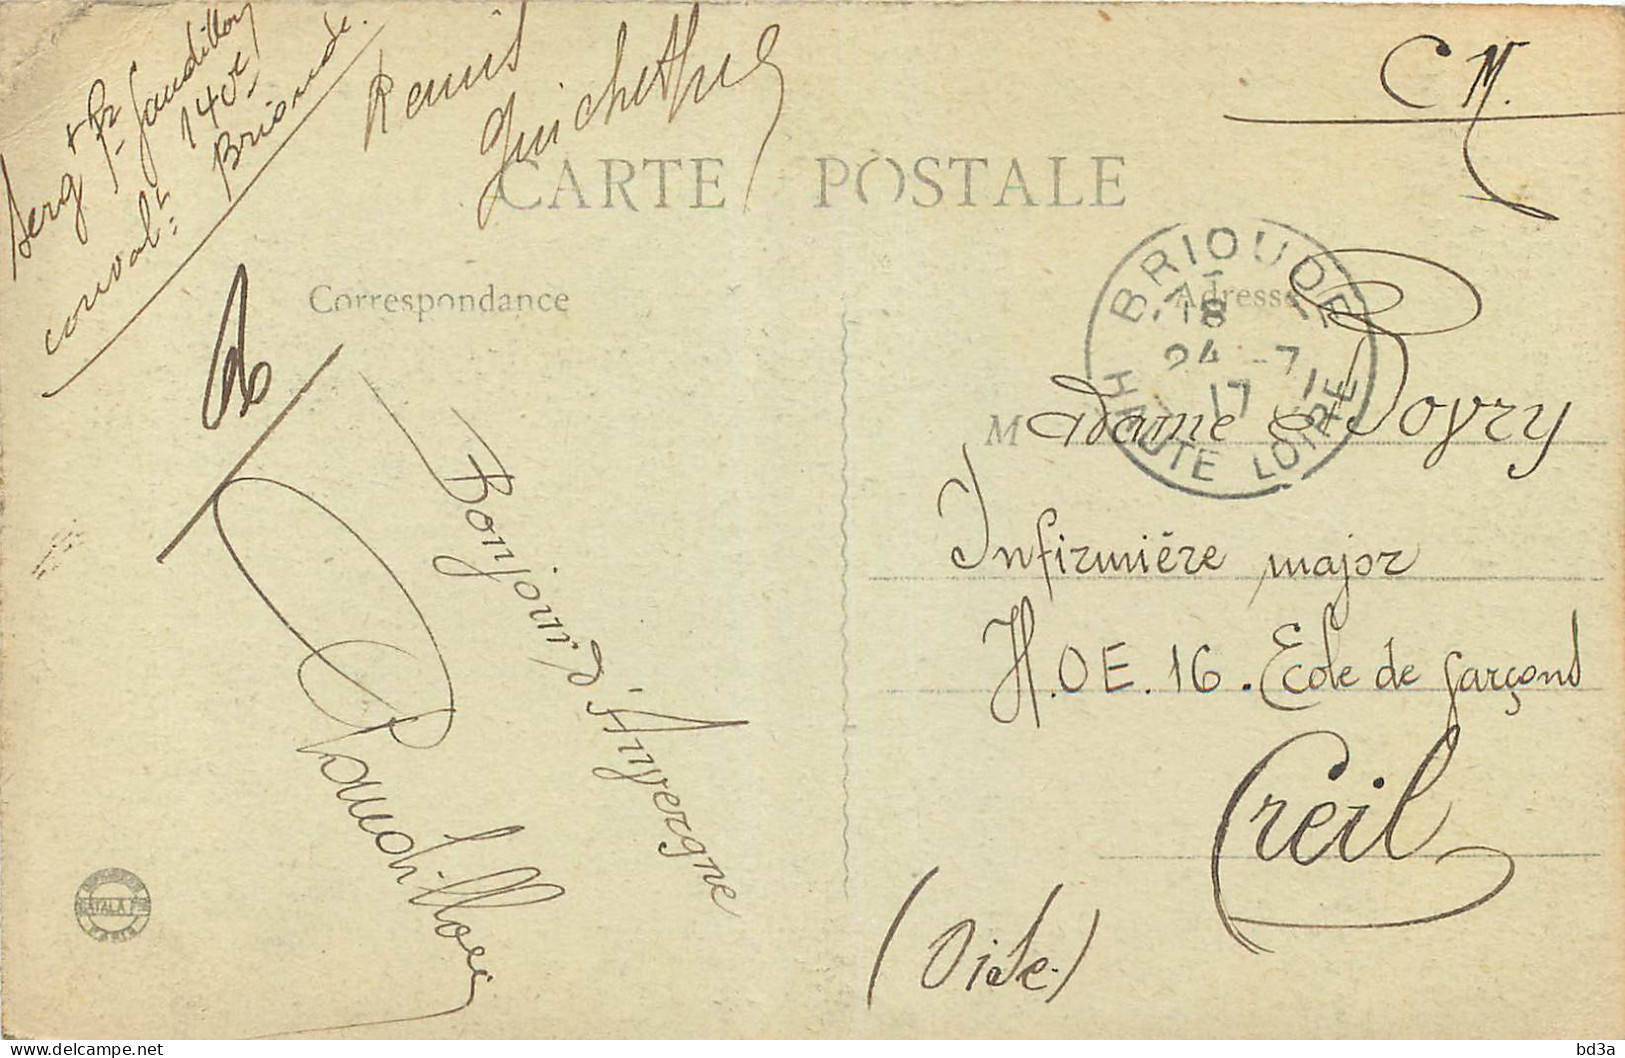 Serg
Gaudillon
140e
convalt. Brioude.
Remis
Guichethue
C M.
CARTE POSTALE
Correspondance
Adresse
BRIOUDE
18
24 -7
17
HAUTE LOIRE
Madame Poyry
Infirmière major
H.O E. 16. Ecole de garçons
Creil
(Oise.)
Bonjour d'Auvergne
Gaudillon
CATALA
PARIS
delcampe.net
bd3a